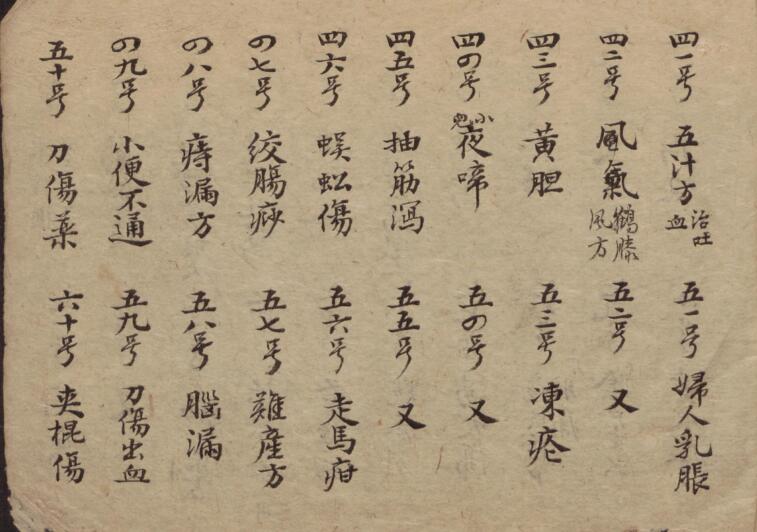 四一号 五汁方 治吐血
四二号 風氣 鶴膝風方
四三号 黄胆
四四号 小兒夜啼
四五号 抽筋瀉
四六号 蜈蚣傷
四七号 絞腸痧
四八号 痔漏方
四九号 小便不通
五十号 刀傷薬
五一号 婦人乳脹
五二号 又
五三号 凍疮
五四号 又
五五号 又
五六号 走馬疳
五七号 難產方
五八号 腦漏
五九号 刀傷出血
六十号 夾棍傷